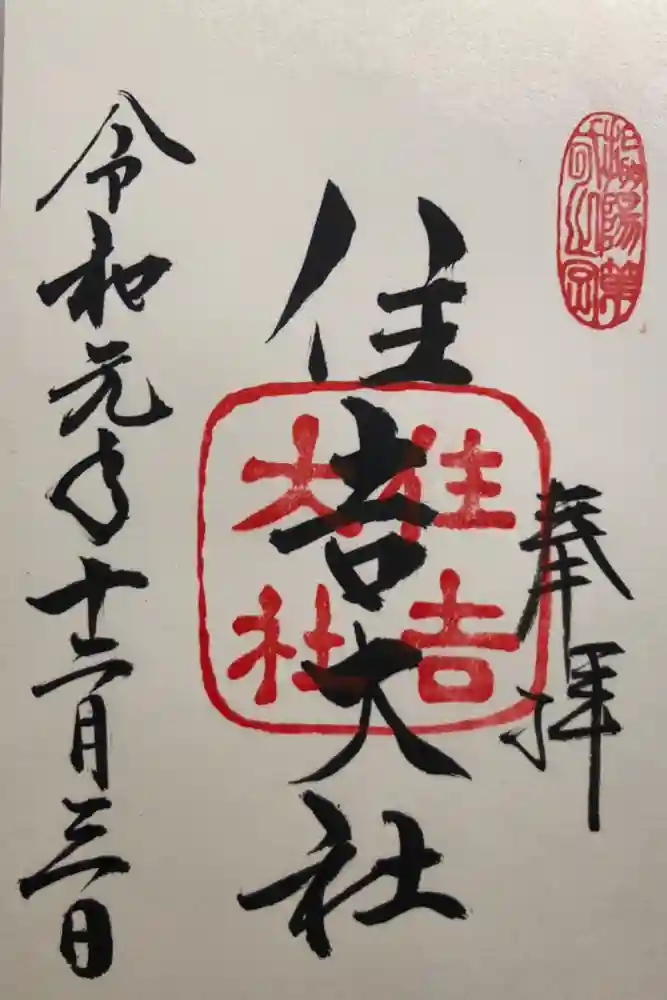 奉拝
住吉大社
住吉大社
令和元年十二月三日